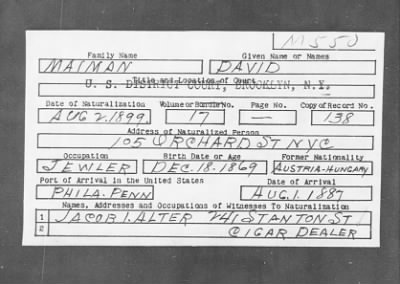 M550
Family Name Given Name or Names
MAIMAN DAVID
Title and Location of Court
U. S. DISTRICT COURT, BROOKLYN, N.Y.
Date of Naturalization Volume or Bundle No. Page No. Copy of Record No.
AUG 2. 1899. 17 — 138
Address of Naturalized Person
105 ORCHARD ST NYC
Occupation Birth Date or Age Former Nationality
JEWLER DEC. 18. 1869 AUSTRIA-HUNGARY
Port of Arrival in the United States Date of Arrival
PHILA. PENN AUG. 1. 1887
Names, Addresses and Occupations of Witnesses To Naturalization
1 JACOB I. ALTER 241 STANTON ST.
2 CIGAR DEALER